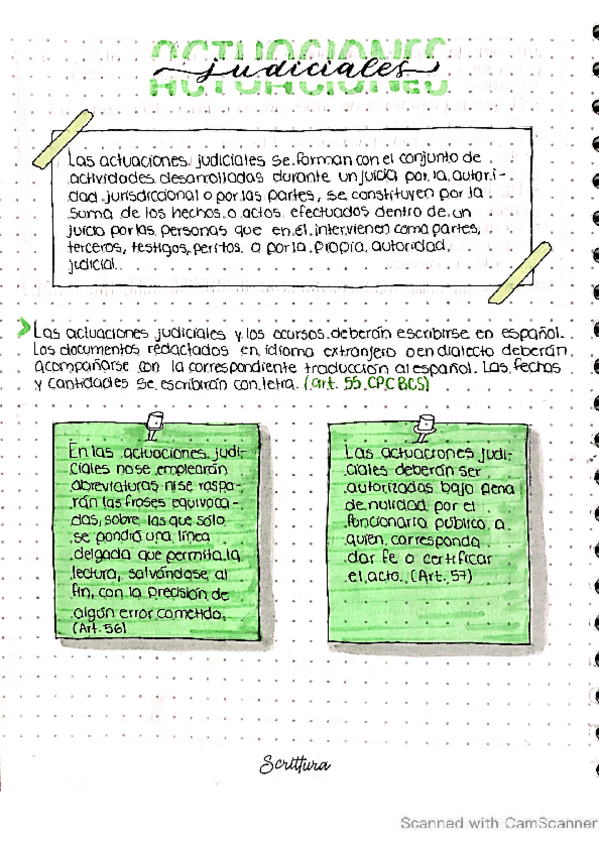 ACTUACIONES
judiciales
Las actuaciones judiciales se forman con el conjunto de
actividades desarrolladas durante un juicio por la autori-
dad jurisdiccional o por las partes, se constituyen por la
suma de los hechos o actos efectuados dentro de un
juicio por las personas que en él intervienen como partes,
terceros, testigos, peritos o por la propia autoridad
judicial.
Las actuaciones judiciales y los ocursos deberán escribirse en español.
Los documentos redactados en idioma extranjero o en dialecto deberán
acompañarse con la correspondiente traducción al español. Las fechas
y cantidades se escribirán con letra. (art. 55 CPC BCS)
En las actuaciones judi-
ciales no se emplearán
abreviaturas ni se raspa-
rán las frases equivoca-
das, sobre las que sólo
se pondrá una línea
delgada que permita la
lectura, salvándose al
fin, con la precisión de
algún error cometido.
(Art. 56)
Las actuaciones judi-
ciales deberán ser
autorizadas bajo pena
de nulidad por el
funcionario público a
quien corresponda
dar fe o certificar
el acto. (Art. 57)
Scrittura
Scanned with CamScanner